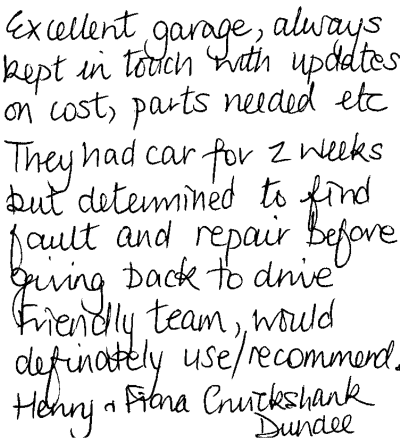 Excellent garage, always
kept in touch with updates
on cost, parts needed etc
They had car for 2 weeks
but determined to find
fault and repair before
giving back to drive
Friendly team, would
definately use/recommend.
Henry & Fiona Cruickshank
Dundee